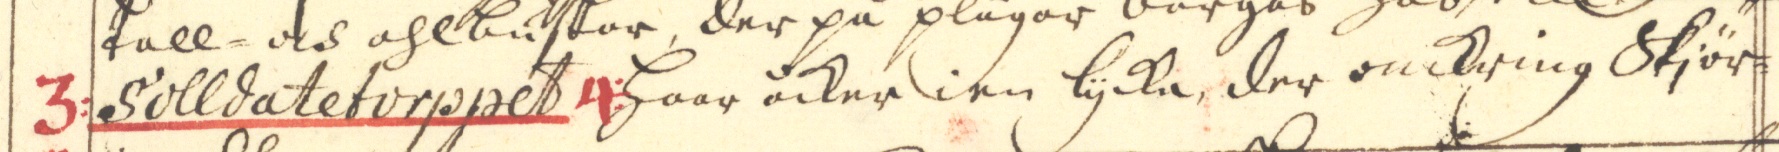 tall- och ahlbuskar, der på plägar bergas
3: Solldatetorppet 4: Haar åcker i en lycka, der omkring Skjör-